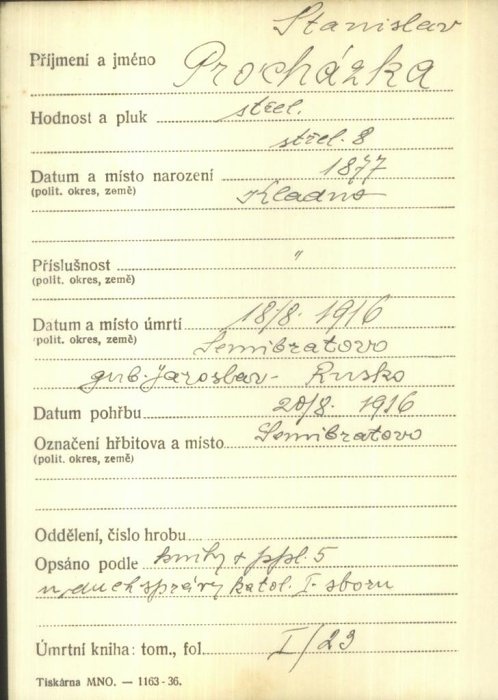 Stanislav
Příjmení a jméno Procházka
Hodnost a pluk střel.
střel. 8
Datum a místo narození 1877
(polit. okres, země) Kladno
Příslušnost "
(polit. okres, země)
Datum a místo úmrtí 18/8. 1916
(polit. okres, země) Semibratovo
gub. Jaroslav - Rusko
Datum pohřbu 20/8. 1916
Označení hřbitova a místo Semibratovo
(polit. okres, země)
Oddělení, číslo hrobu
Opsáno podle knihy + ppl. 5
duch správy katol. I. sboru
Úmrtní kniha: tom., fol. I/23
Tiskárna MNO. — 1163-36.